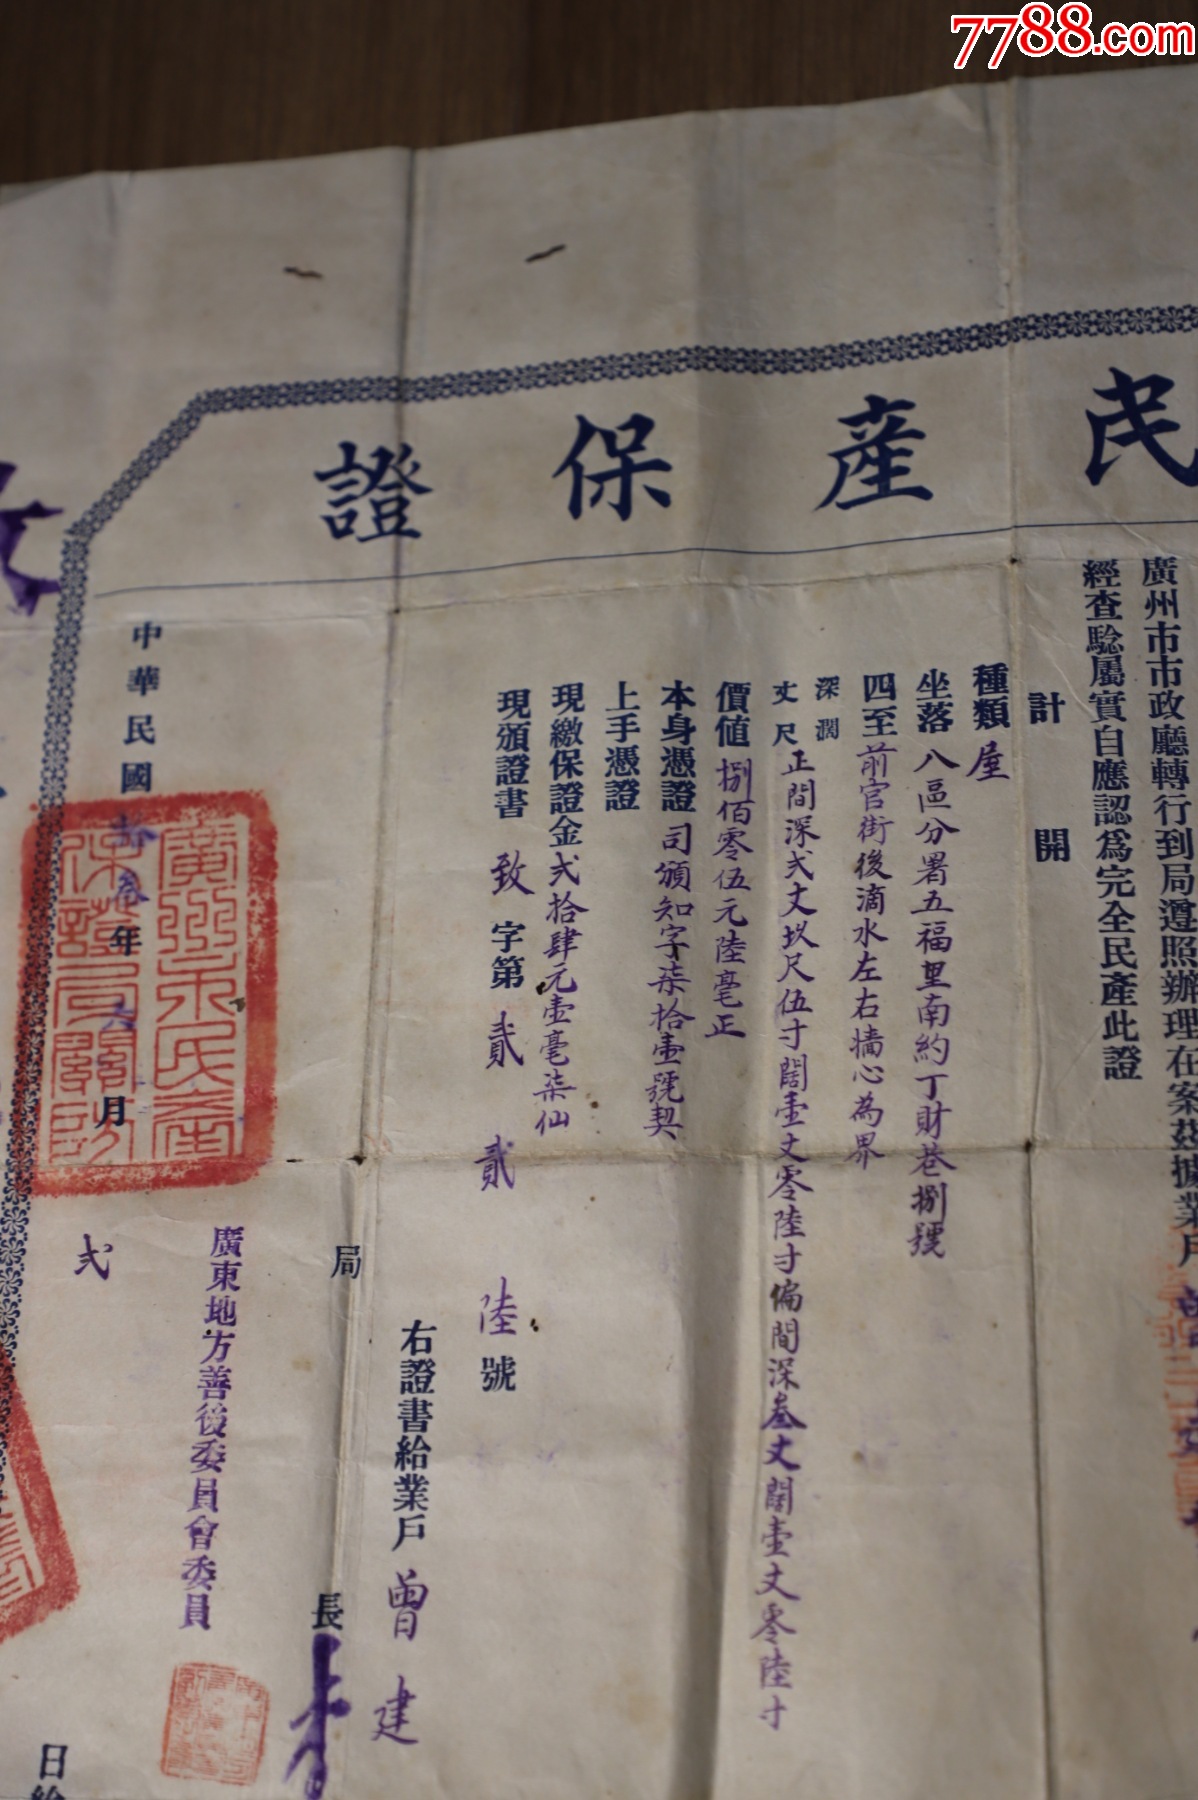 7788.com
民產保證
廣州市市政廳轉行到局遵照辦理在案茲據業戶
經查驗屬實自應認為完全民產此證
計開
種類 屋
坐落 八區分署五福里南約丁財巷捌號
四至 前官街後滴水左右牆心為界
深濶丈尺 正間深弍丈玖尺伍寸闊壹丈零陸寸偏間深叁丈闊壹丈零陸寸
價值 捌佰零伍元陸毫正
本身憑證 司頒知字柒拾壹號契
上手憑證
現繳保證金弍拾肆元壹毫柒仙
現頒證書 致字第貳貳陸號
右證書給業戶曾建
局長
廣東地方善後委員會委員
中華民國拾叁年六月弍日給
廣州市民產保證局關防